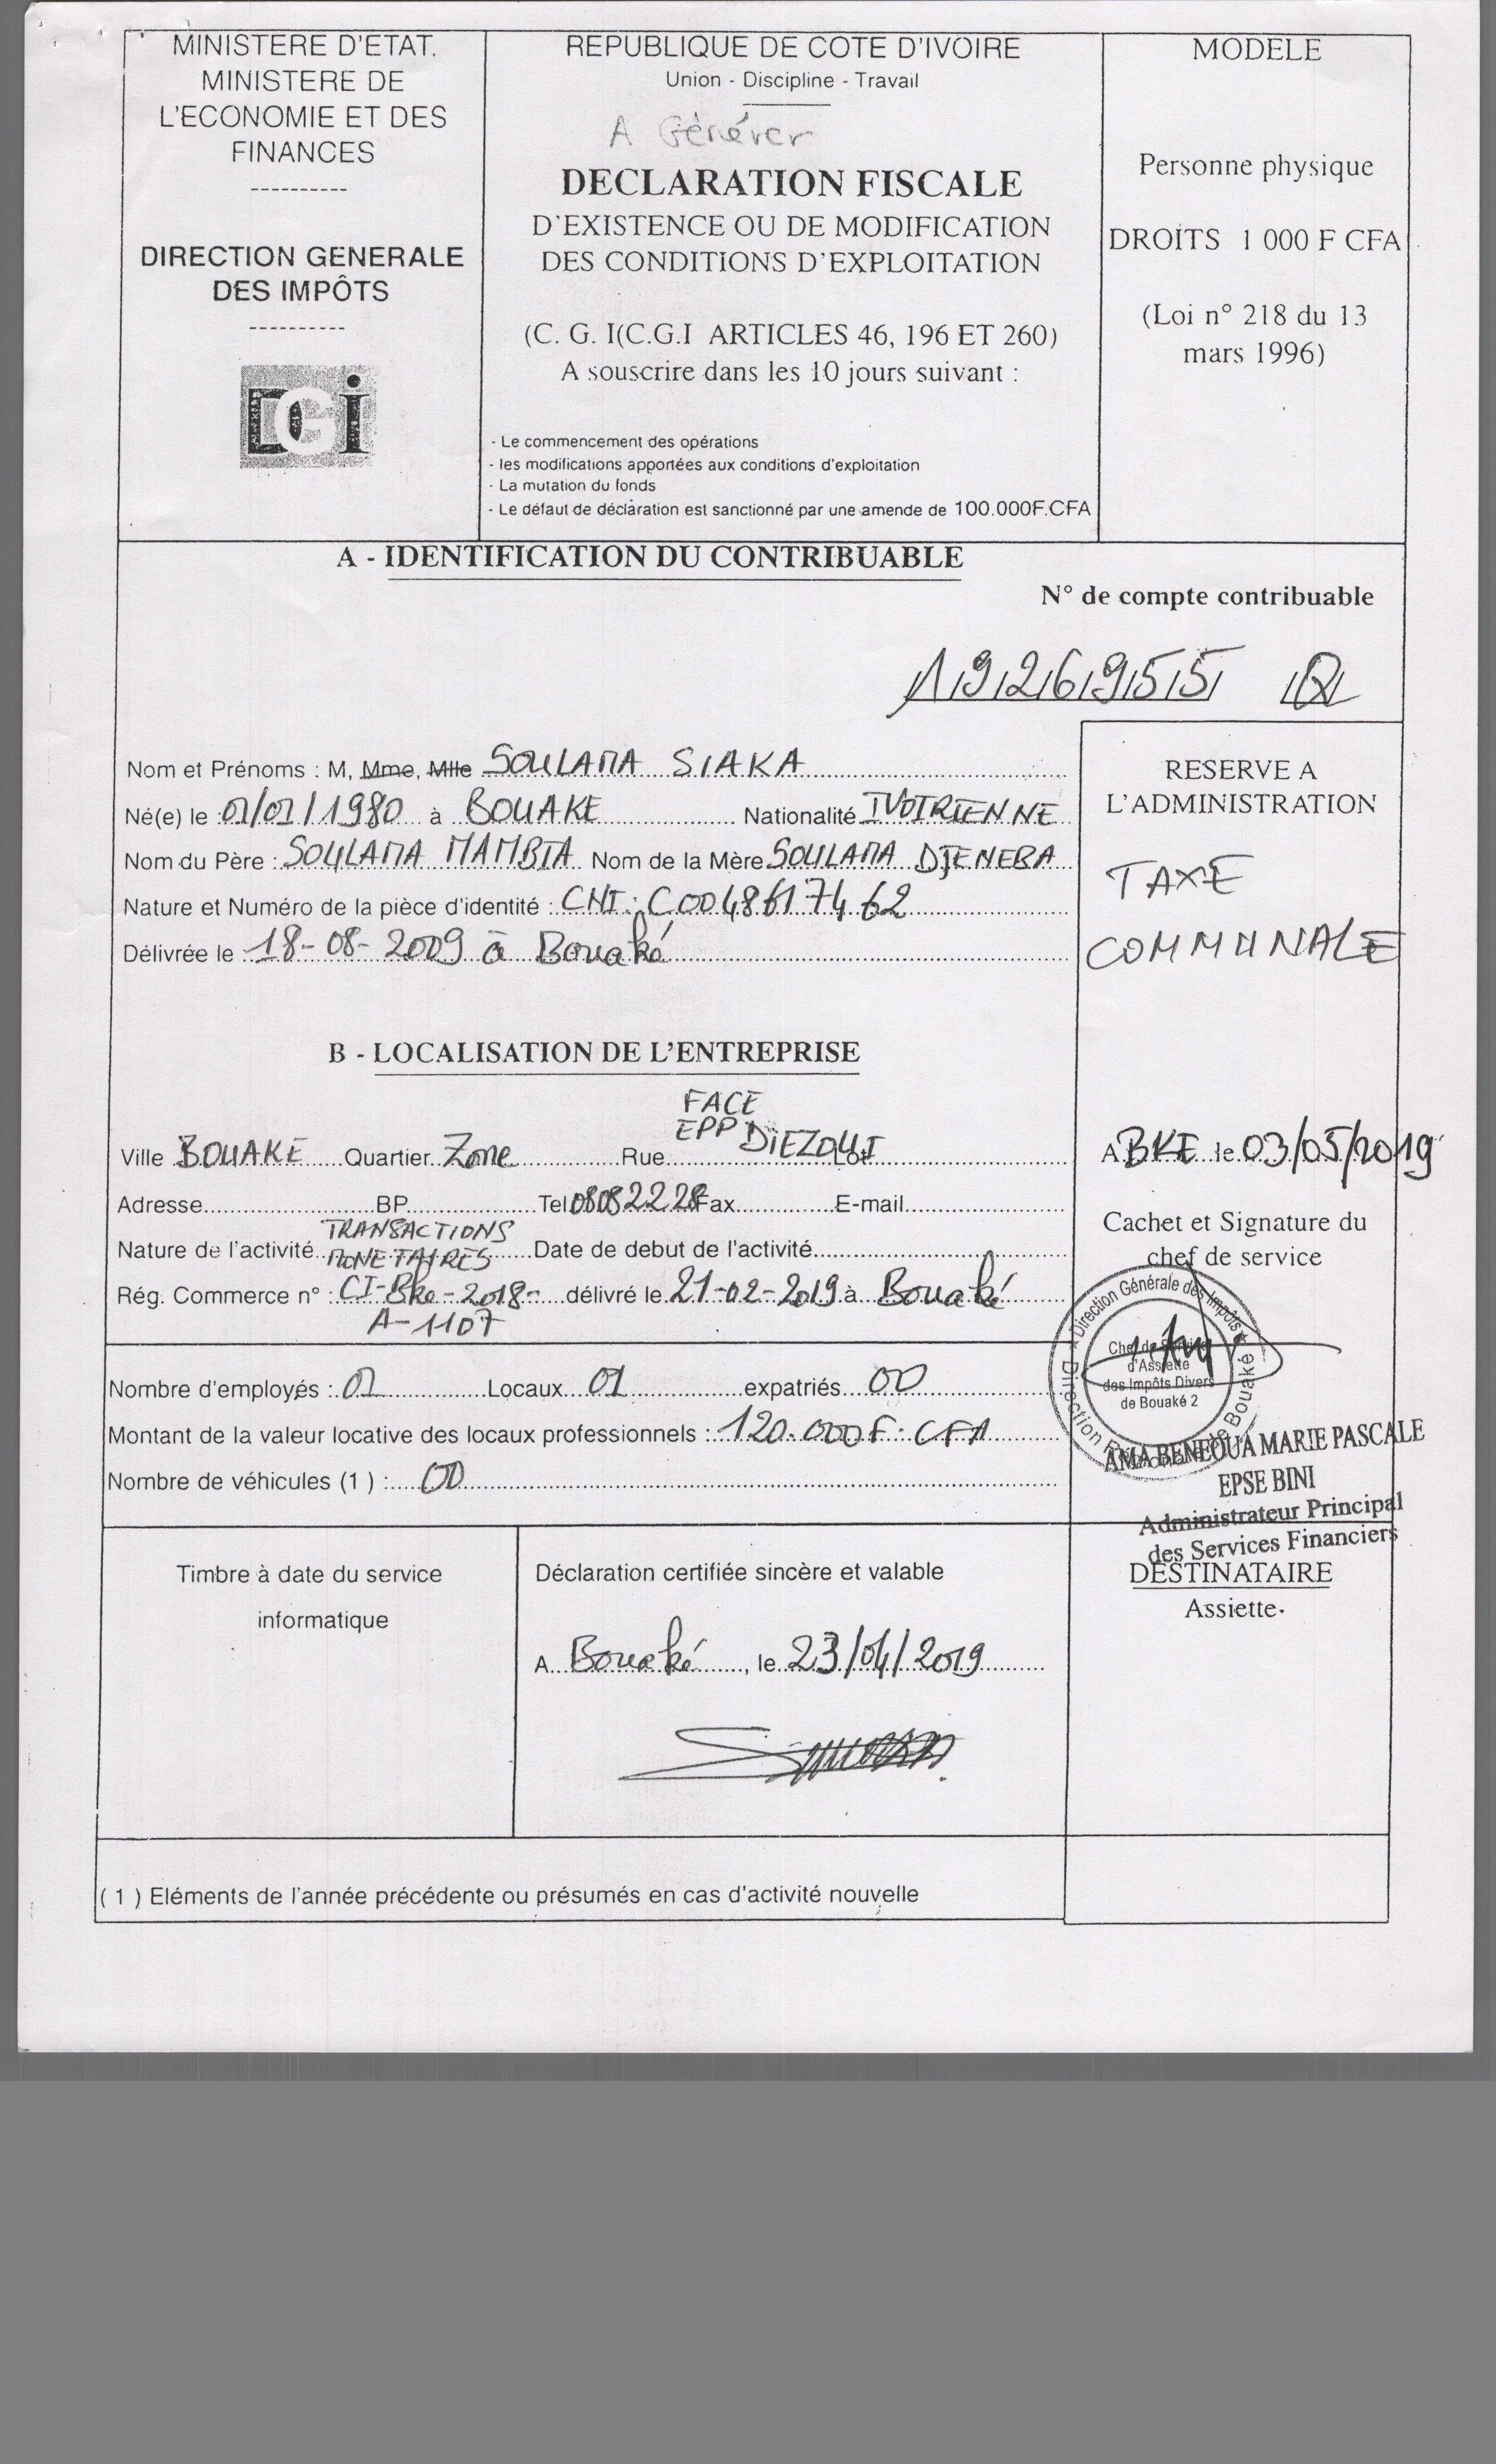 MINISTERE D'ETAT.
MINISTERE DE
L'ECONOMIE ET DES
FINANCES
----------
DIRECTION GENERALE
DES IMPÔTS
----------
DGI
REPUBLIQUE DE COTE D'IVOIRE
Union - Discipline - Travail
A Générer
DECLARATION FISCALE
D'EXISTENCE OU DE MODIFICATION
DES CONDITIONS D'EXPLOITATION
(C. G. I(C.G.I ARTICLES 46, 196 ET 260)
A souscrire dans les 10 jours suivant :
- Le commencement des opérations
- les modifications apportées aux conditions d'exploitation
- La mutation du fonds
- Le défaut de déclaration est sanctionné par une amende de 100.000F.CFA
MODELE
Personne physique
DROITS 1 000 F CFA
(Loi n° 218 du 13
mars 1996)
A - IDENTIFICATION DU CONTRIBUABLE
N° de compte contribuable
1926955 Q
Nom et Prénoms : M, Mme, Mlle SOULAMA SIAKA
Né(e) le 01/01/1980 à BOUAKE Nationalité IVOIRIENNE
Nom du Père : SOULAMA MAMBIA Nom de la Mère SOULAMA DJENEBA
Nature et Numéro de la pièce d'identité : CNI: C0048617462
Délivrée le : 18-08-2009 à Bouaké
RESERVE A
L'ADMINISTRATION
TAXE
COMMUNALE
B - LOCALISATION DE L'ENTREPRISE
FACE
EPP DIEZOUI
Ville BOUAKE Quartier Zone Rue Lot
Adresse BP Tel 08082228 Fax E-mail
TRANSACTIONS
Nature de l'activité MONETAIRES Date de debut de l'activité
Rég. Commerce n° : CI-Bke-2018- délivré le 21-02-2019 à Bouaké
A-1107
A BKE le 03/05/2019
Cachet et Signature du
chef de service
Direction Générale des Impôts
Direction Régionale de Bouaké
Chef de Service
d'Assiette
des Impôts Divers
de Bouaké 2
AMA BENEOUA MARIE PASCALE
EPSE BINI
Administrateur Principal
des Services Financiers
Nombre d'employés : 01 Locaux 01 expatriés 00
Montant de la valeur locative des locaux professionnels : 120.000F.CFA
Nombre de véhicules (1) : 00
Timbre à date du service
informatique
Déclaration certifiée sincère et valable
A Bouaké, le 23/04/2019
DESTINATAIRE
Assiette.
( 1 ) Eléments de l'année précédente ou présumés en cas d'activité nouvelle